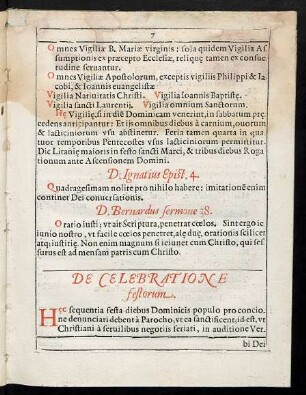 7
Omnes Vigiliæ B. Mariæ virginis: sola quidem Vigilia As
sumptionis ex præcepto Ecclesiæ, reliquę tamen ex consue
tudine seruantur.
Omnes Vigiliæ Apostolorum, exceptis vigiliis Philippi & Ia
cobi, & Ioannis euangelistæ
Vigilia Natiuitatis Christi. Vigilia Ioannis Baptistę.
Vigilia sancti Laurentij. Vigilia omnium Sanctorum.
Hę Vigilię, si in diē Dominicam venerint, in sabbatum prę
cedens anticipantur: Et is omnibus diebus à carnium, ouorum
& lacticiniorum vsu abstinetur. Feria tamen quarta in qua
tuor temporibus Pentecostes vsus lacticiniorum permittitur.
Die Litaniæ maioris in festo sancti Marci, & tribus diebus Roga
tionum ante Ascensionem Domini.
D. Ignatius Epist. 4.
Quadragesimam nolite pro nihilo habere: imitationē enim
continet Dei conuersationis.
D. Bernardus sermone 38.
Oratio iusti; vt ait Scriptura, penetrat cœlos. Sint ergo ie
iunio nostro, vt facile cœlos penetret, alę duę, orationis scilicet
atq; iustitię. Non enim magnum si ieiunet cum Christo, qui ses
surus est ad mensam patris cum Christo.
DE CELEBRATIONE
festorum.
Hęc sequentia festa diebus Dominicis populo pro concio
ne denunciari debent à Parocho, vt ea sanctificent, id est, vt
Christiani à seruilibus negotiis feriati, in auditione Ver.
bi Dei